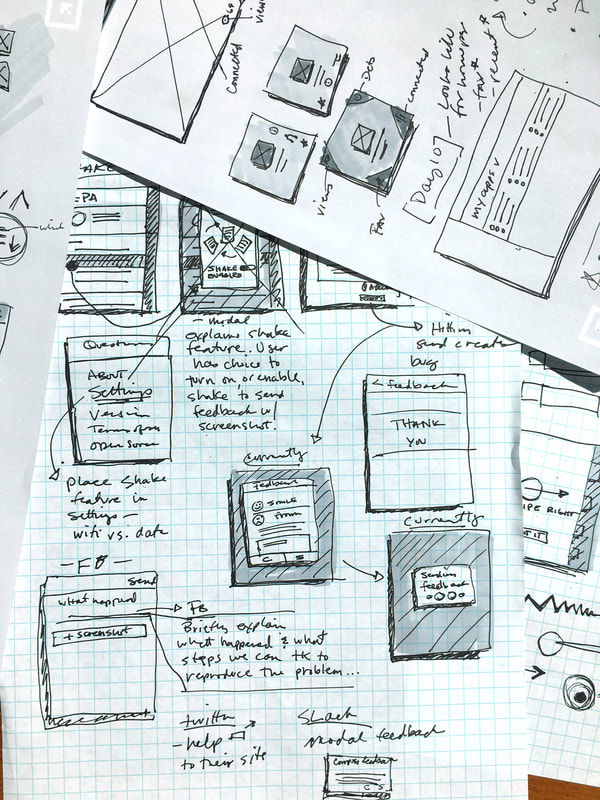 Connected
views
Deb
connected
views
Fav
[Day 107]
Looks like
for homepage
- fav *
- recent *
my apps v
SHAKE
EPA
SHAKE
ENABLED
- modal
explains shake
feature. User
has choice to
turn on, or enable,
shake to send
feedback w/
screenshot.
send create
bug
Questions
ABOUT
Settings
Version
Terms of
Open Source
place shake
feature in
settings -
wifi vs. data
< feedback
THANK
YOU
Currently
Feedback
SMILE
Frown
C S
Currently
Sending
feedback
PE RIGHT
IT
- FB -
Send
what happened
+ screenshot
FB
Briefly explain
what happened & what
steps we can tk to
reproduce the problem...
twitter
- help
to their site
Slack
modal feedback
compose feedback
C S